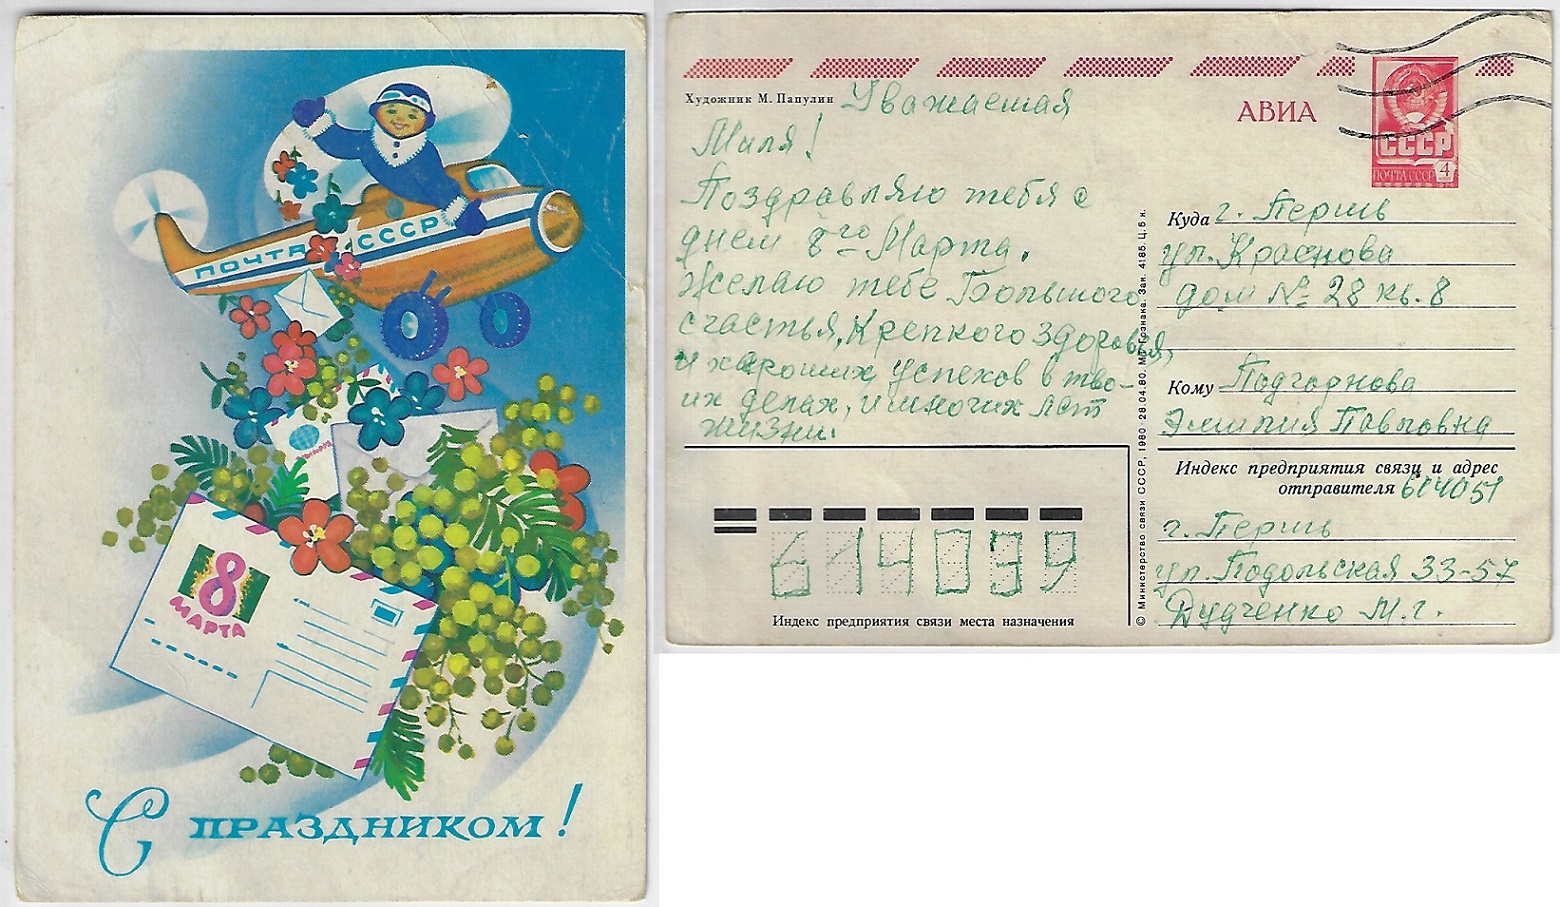 ПОЧТА СССР
8
МАРТА
С ПРАЗДНИКОМ!
Художник М. Папулин
АВИА
СССР
ПОЧТА СССР 4
Уважаемая
Миля!
Поздравляю тебя с
днем 8го Марта.
Желаю тебе Большого
счастья, Крепкого здоровья,
и хароших успехов в тво-
их делах, и многих лет
жизни.
Куда г. Пермь
ул. Краснова
дом № 28 кв. 8
Кому Подгорнова
Эмилия Павловна
Индекс предприятия связи и адрес
отправителя 614051
г. Пермь
ул. Подольская 33-57
Дудченко М.г.
614039
Индекс предприятия связи места назначения
© Министерство связи СССР, 1980. 28.04.80. МПФ Гознака. Зак. 4185. Ц. 5 к.